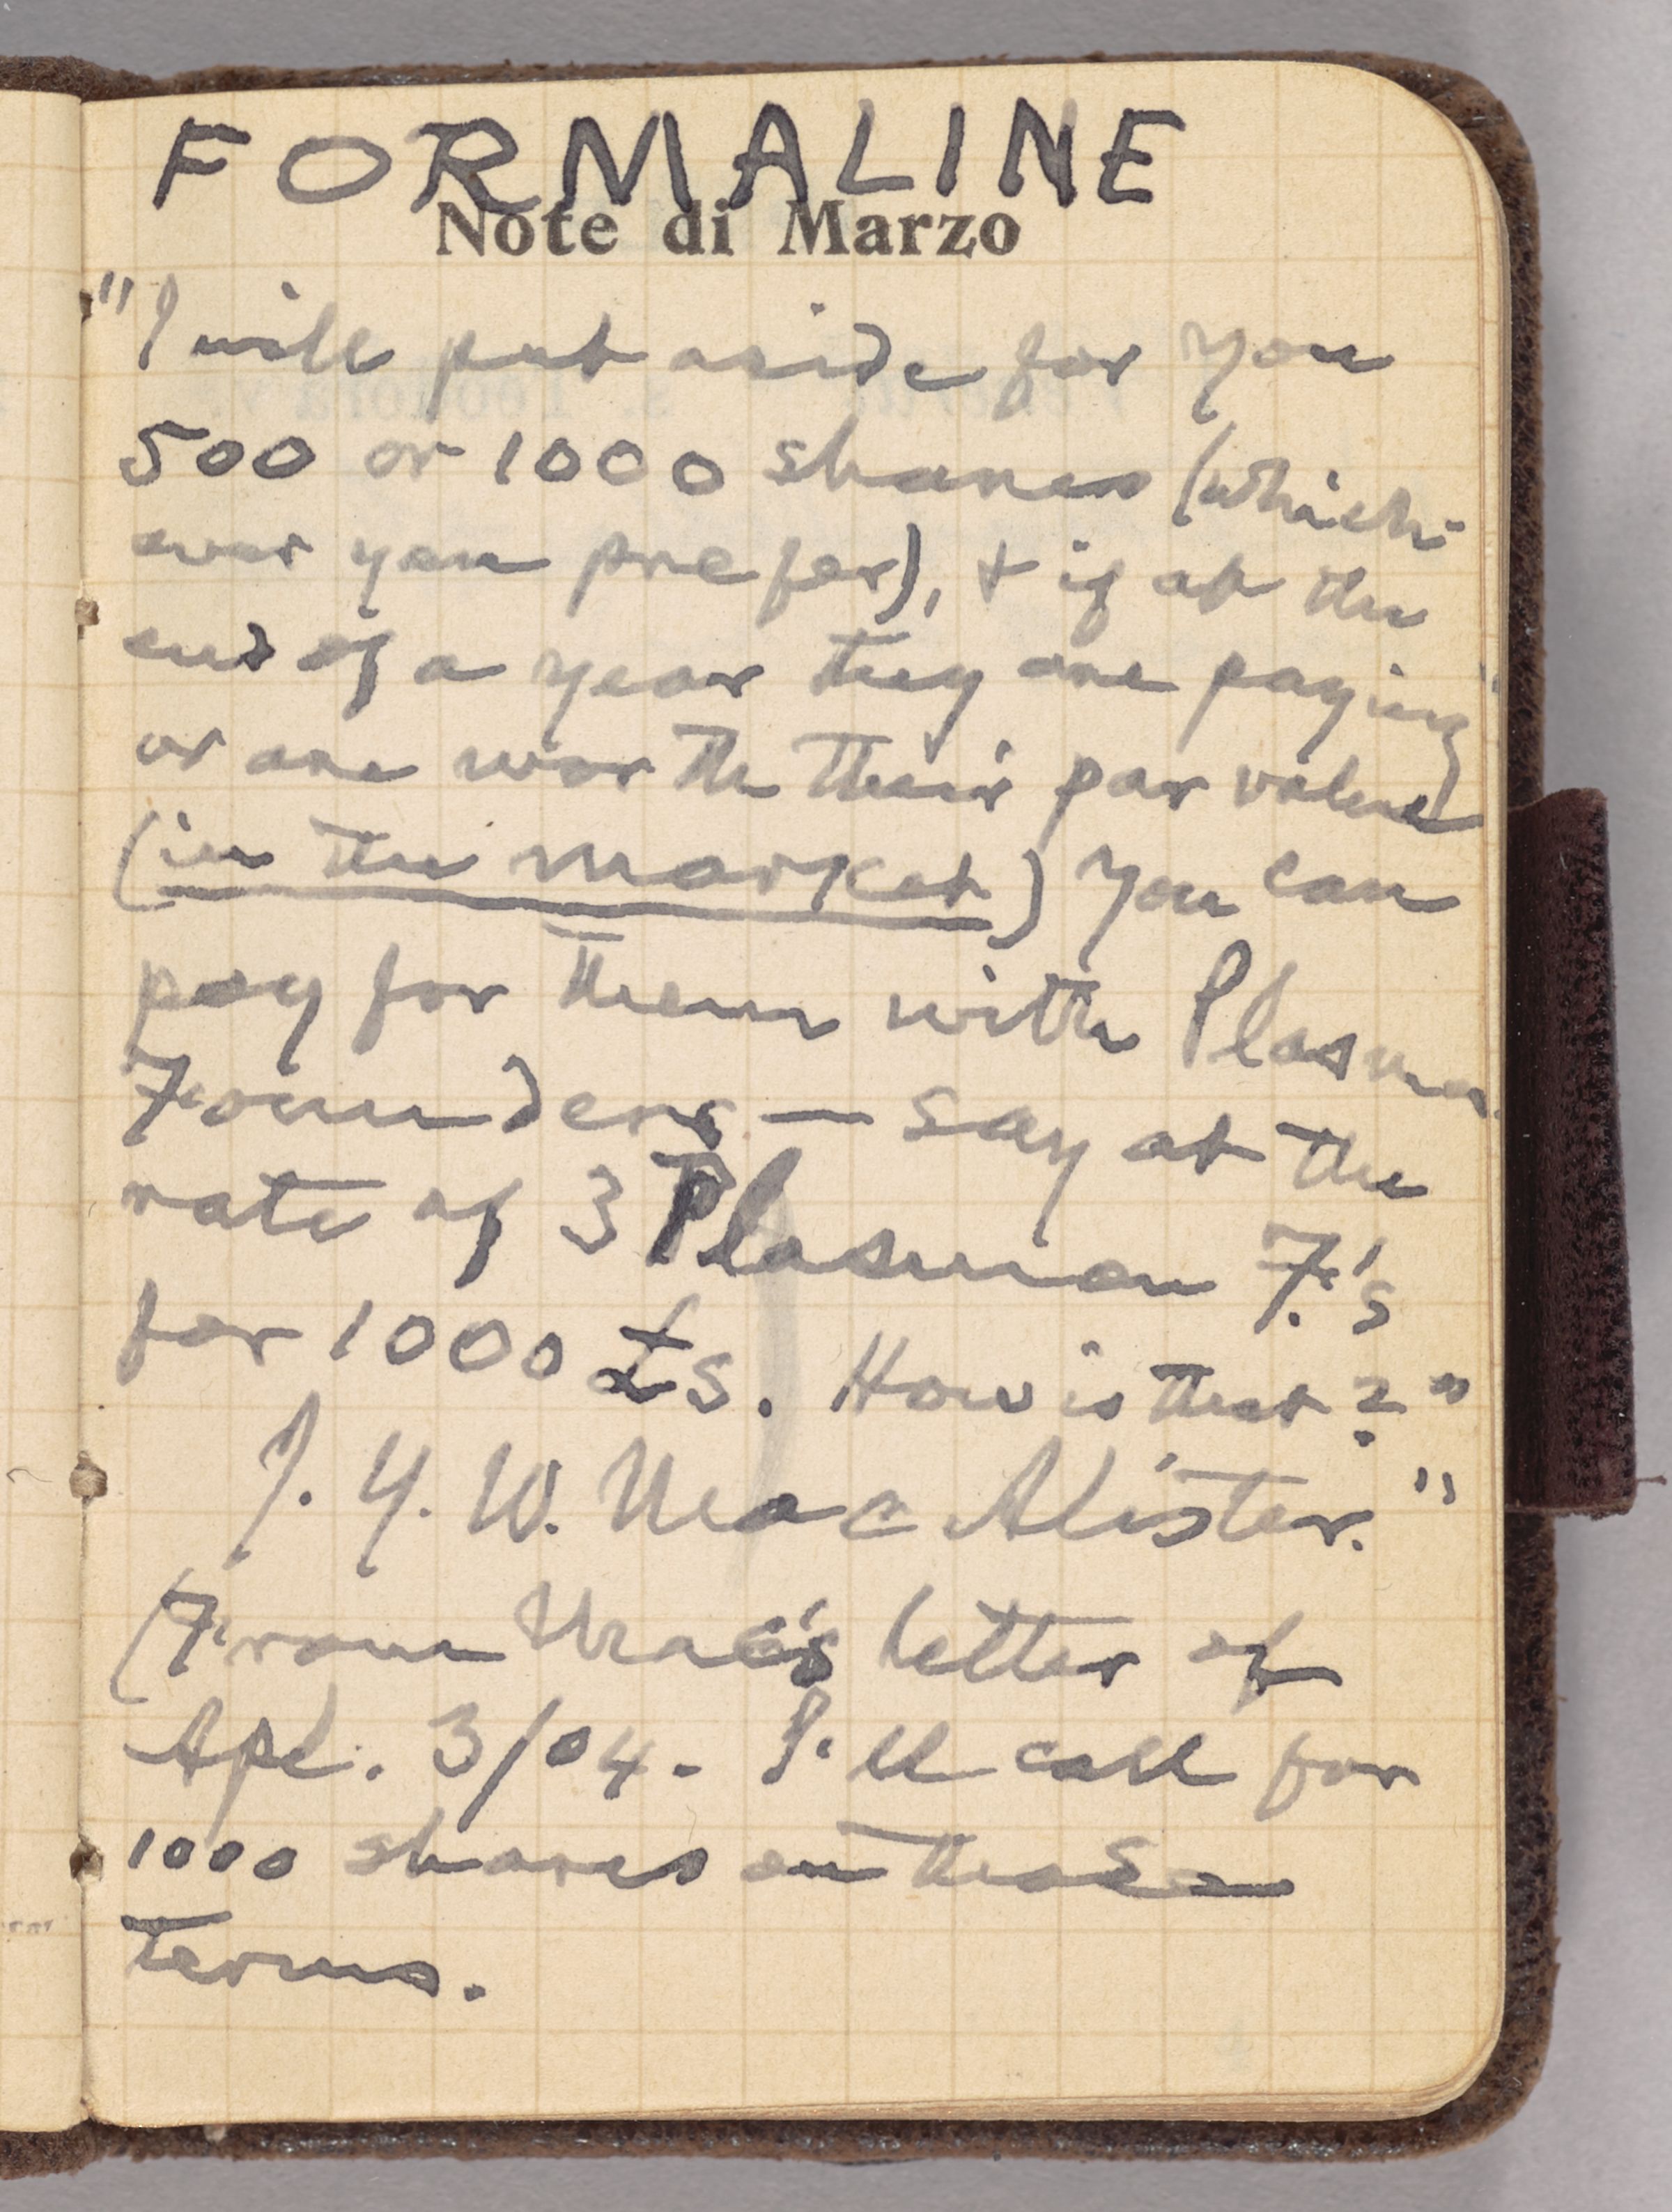 FORMALINE
Note di Marzo
"I will put aside for you
500 or 1000 shares (which-
ever you prefer), + if at the
end of a year they are paying
or are worth their par value
(in the market) you can
pay for them with Plasmon
Founders — say at the
rate of 3 Plasmon F.'s
for 1000 £s. How is that?"
J. Y. W. MacAlister."
(From Mac's letter of
Apl. 3/04. I'll call for
1000 shares on those
terms.